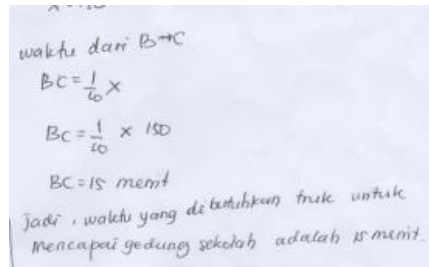 waktu dari B→C
BC = 1/10 x
BC = 1/10 x 150
BC = 15 menit
jadi, waktu yang dibutuhkan truk untuk
mencapai gedung sekolah adalah 15 menit.